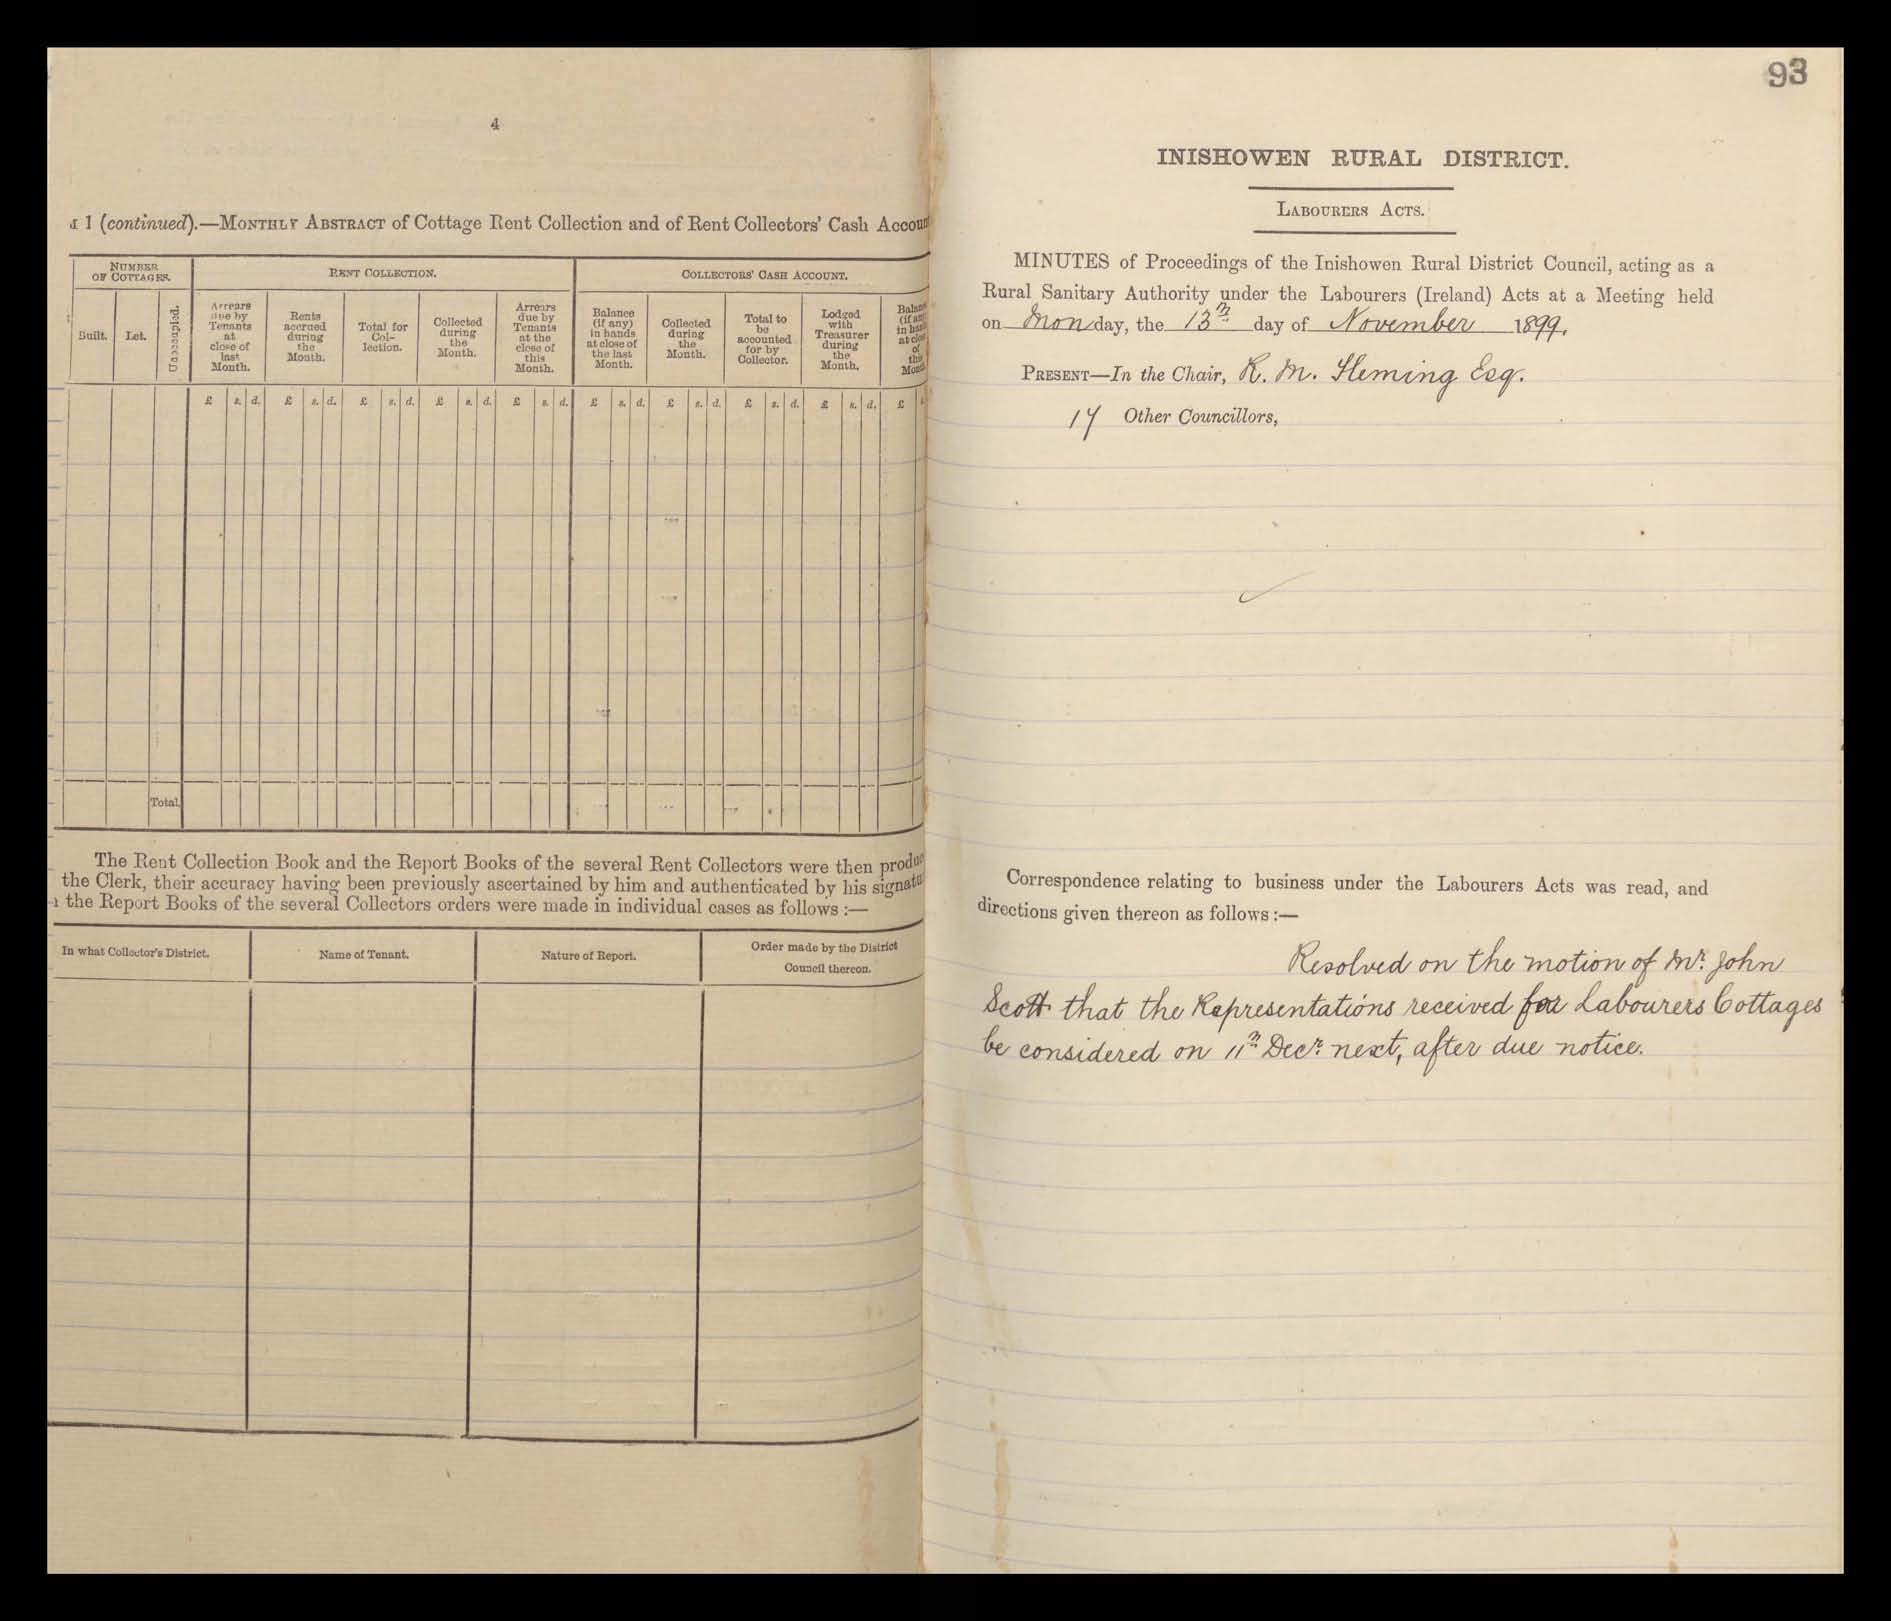 4
1 (continued).—MONTHLY ABSTRACT of Cottage Rent Collection and of Rent Collectors' Cash Accoun
NUMBER
OF COTTAGES.
RENT COLLECTION.
COLLECTORS' CASH ACCOUNT.
Built.
Let.
Unoccupied.
Arrears
due by
Tenants
at
close of
last
Month.
Rents
accrued
during
the
Month.
Total for
Col-
lection.
Collected
during
the
Month.
Arrears
due by
Tenants
at the
close of
this
Month.
Balance
(if any)
in hands
at close of
the last
Month.
Collected
during
the
Month.
Total to
be
accounted
for by
Collector.
Lodged
with
Treasurer
during
the
Month.
Balan
(if an
in han
at clos
of
thi
Mon
£ s. d. £ s. d. £ s. d. £ s. d. £ s. d. £ s. d. £ s. d. £ s. d. £ s. d. £
Total.
The Rent Collection Book and the Report Books of the several Rent Collectors were then produc
the Clerk, their accuracy having been previously ascertained by him and authenticated by his signatu
the Report Books of the several Collectors orders were made in individual cases as follows :—
In what Collector's District.
Name of Tenant.
Nature of Report.
Order made by the District
Council thereon.
93
INISHOWEN RURAL DISTRICT.
LABOURERS ACTS.
MINUTES of Proceedings of the Inishowen Rural District Council, acting as a
Rural Sanitary Authority under the Labourers (Ireland) Acts at a Meeting held
on Monday, the 13th day of November 1899.
PRESENT—In the Chair, R. M. Fleming Esq.
17 Other Councillors,
Correspondence relating to business under the Labourers Acts was read, and
directions given thereon as follows :—
Resolved on the motion of Mr. John
Scott that the Representations received for Labourers Cottages
be considered on 11th Decr. next, after due notice.